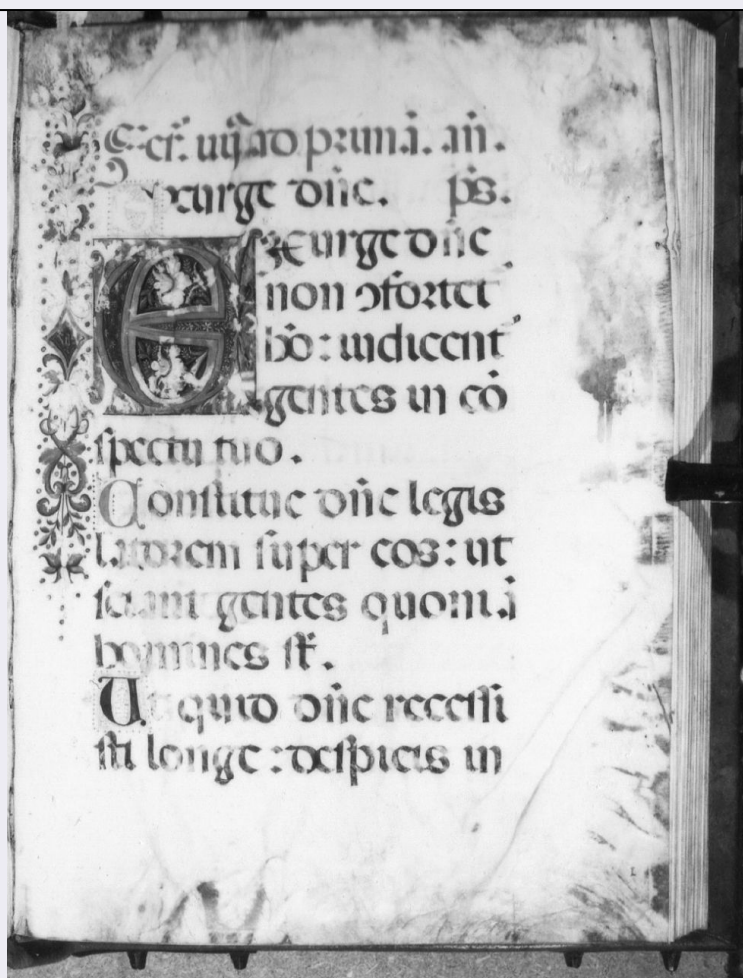 ad primã. añ.
Exurge dñe. ps.
Exurge dñe
non ɔfortet᷑
hõ: iudicent᷑
gentes in cõ
spectu tuo.
Constitue dñe legis
latorem super eos: ut
sciant gentes quoniã
homines st̃.
Ut quid dñe recessi
sti longe: despicis in